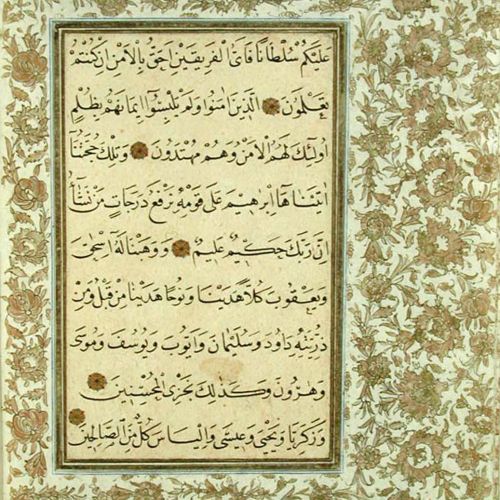 عَلَيْكُمْ سُلْطَانًا فَاَيُّ الْفَرِيقَيْنِ اَحَقُّ بِالْاَمْنِ اِنْ كُنْتُمْ
تَعْلَمُونَ الَّذِينَ اٰمَنُوا وَلَمْ يَلْبِسُوٓا اِيمَانَهُمْ بِظُلْمٍ
اُولٰٓئِكَ لَهُمُ الْاَمْنُ وَهُمْ مُهْتَدُونَ وَتِلْكَ حُجَّتُنَٓا
اٰتَيْنَاهَٓا اِبْرٰهِيمَ عَلٰى قَوْمِهِ نَرْفَعُ دَرَجَاتٍ مَنْ نَشَٓاءُ
اِنَّ رَبَّكَ حَكِيمٌ عَلِيمٌ وَوَهَبْنَا لَهُ اِسْحٰقَ
وَيَعْقُوبَ كُلًّا هَدَيْنَا وَنُوحًا هَدَيْنَا مِنْ قَبْلُ وَمِنْ
ذُرِّيَّتِهِ دَاوُدَ وَسُلَيْمَانَ وَاَيُّوبَ وَيُوسُفَ وَمُوسٰى
وَهٰرُونَ وَكَذٰلِكَ نَجْزِي الْمُحْسِنِينَ
وَزَكَرِيَّا وَيَحْيٰى وَعِيسٰى وَاِلْيَاسَ كُلٌّ مِنَ الصَّالِحِينَ